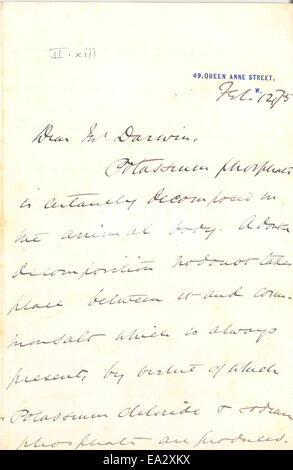 II. xiii
49, QUEEN ANNE STREET,
W.
Feb. 12/75
Dear Mr Darwin,
Potassium phosphate
is certainly decomposed in
the animal body. A double
decomposition no doubt takes
place between it and com-
mon salt which is always
present, by virtue of which
Potassium chloride & sodium
phosphate are produced.
alamy
EA2XKX